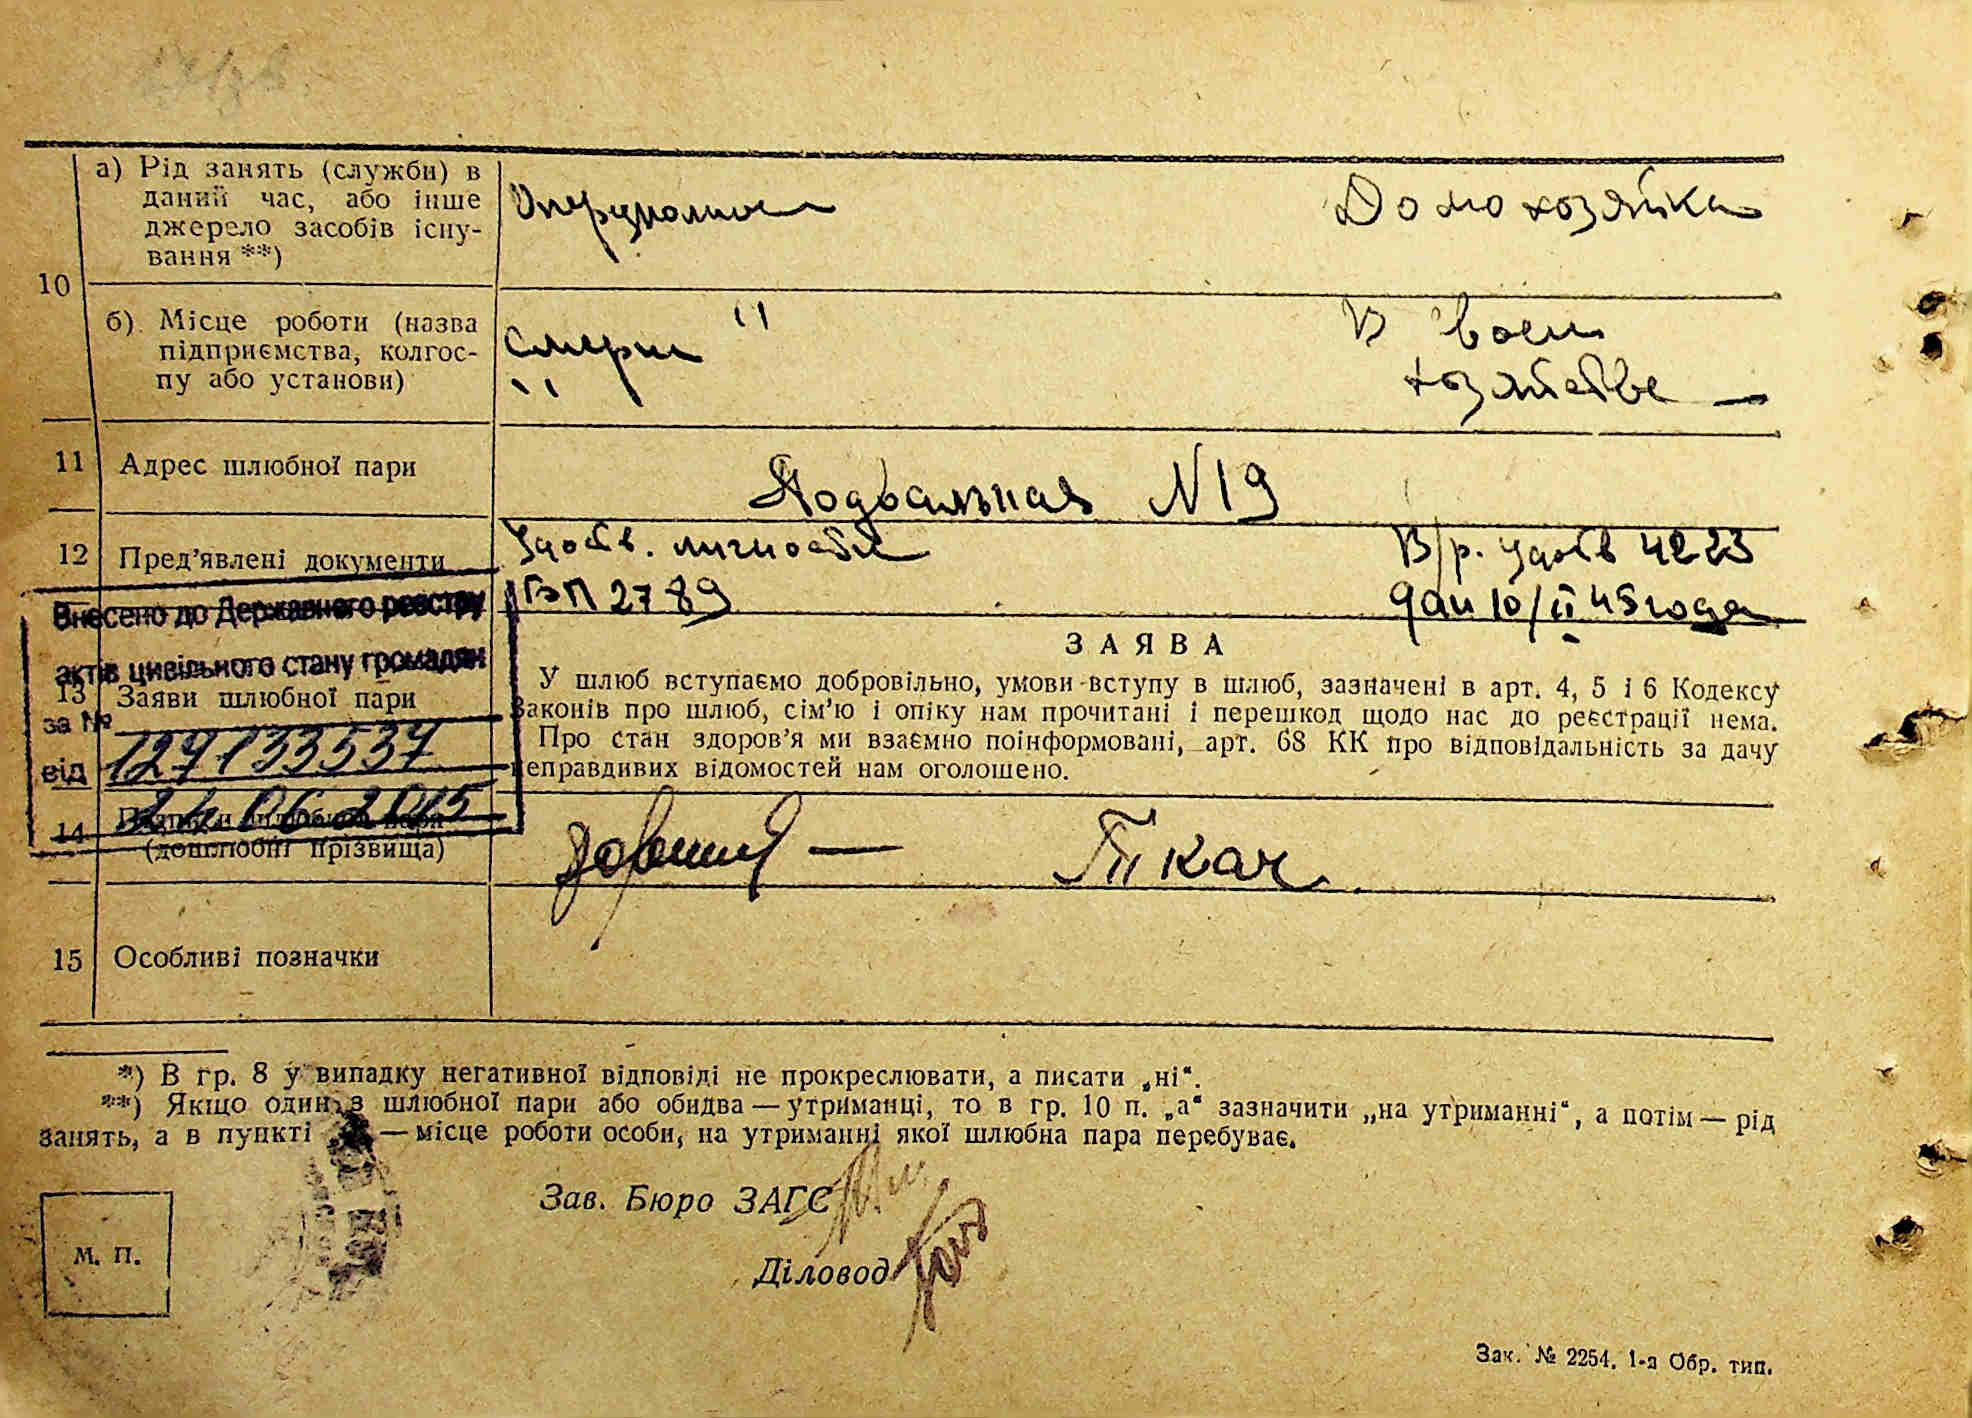 а) Рід занять (служби) в
даний час, або інше
джерело засобів існу-
вання **)
Оперуполном
Домохозяйка
10
б) Місце роботи (назва
підприємства, колгос-
пу або установи)
"
Смерш
"
В
хозяйстве —
11 Адрес шлюбної пари
Подвальная N 19
12 Пред'явлені документи
Удостов. личности
ГБП 2789
В/р. удостов 4223
дан 10/II 45 года
Внесено до Державного реєстру
актів цивільного стану громадян
за № 127133537
від 24 06 2015
13 Заяви шлюбної пари
ЗАЯВА
У шлюб вступаємо добровільно, умови вступу в шлюб, зазначені в арт. 4, 5 і 6 Кодексу
Законів про шлюб, сім'ю і опіку нам прочитані і перешкод щодо нас до реєстрації нема.
Про стан здоров'я ми взаємно поінформовані, арт. 68 КК про відповідальність за дачу
неправдивих відомостей нам оголошено.
14 Підписи шлюбної пари
(дошлюбні прізвища)
— Ткач
15 Особливі позначки
*) В гр. 8 у випадку негативної відповіді не прокреслювати, а писати „ні“.
**) Якщо один з шлюбної пари або обидва — утриманці, то в гр. 10 п. „а“ зазначити „на утриманні“, а потім — рід
занять, а в пункті — місце роботи особи, на утриманні якої шлюбна пара перебуває.
Зав. Бюро ЗАГС
Діловод
М. П.
Зак. № 2254. 1-а Обр. тип.